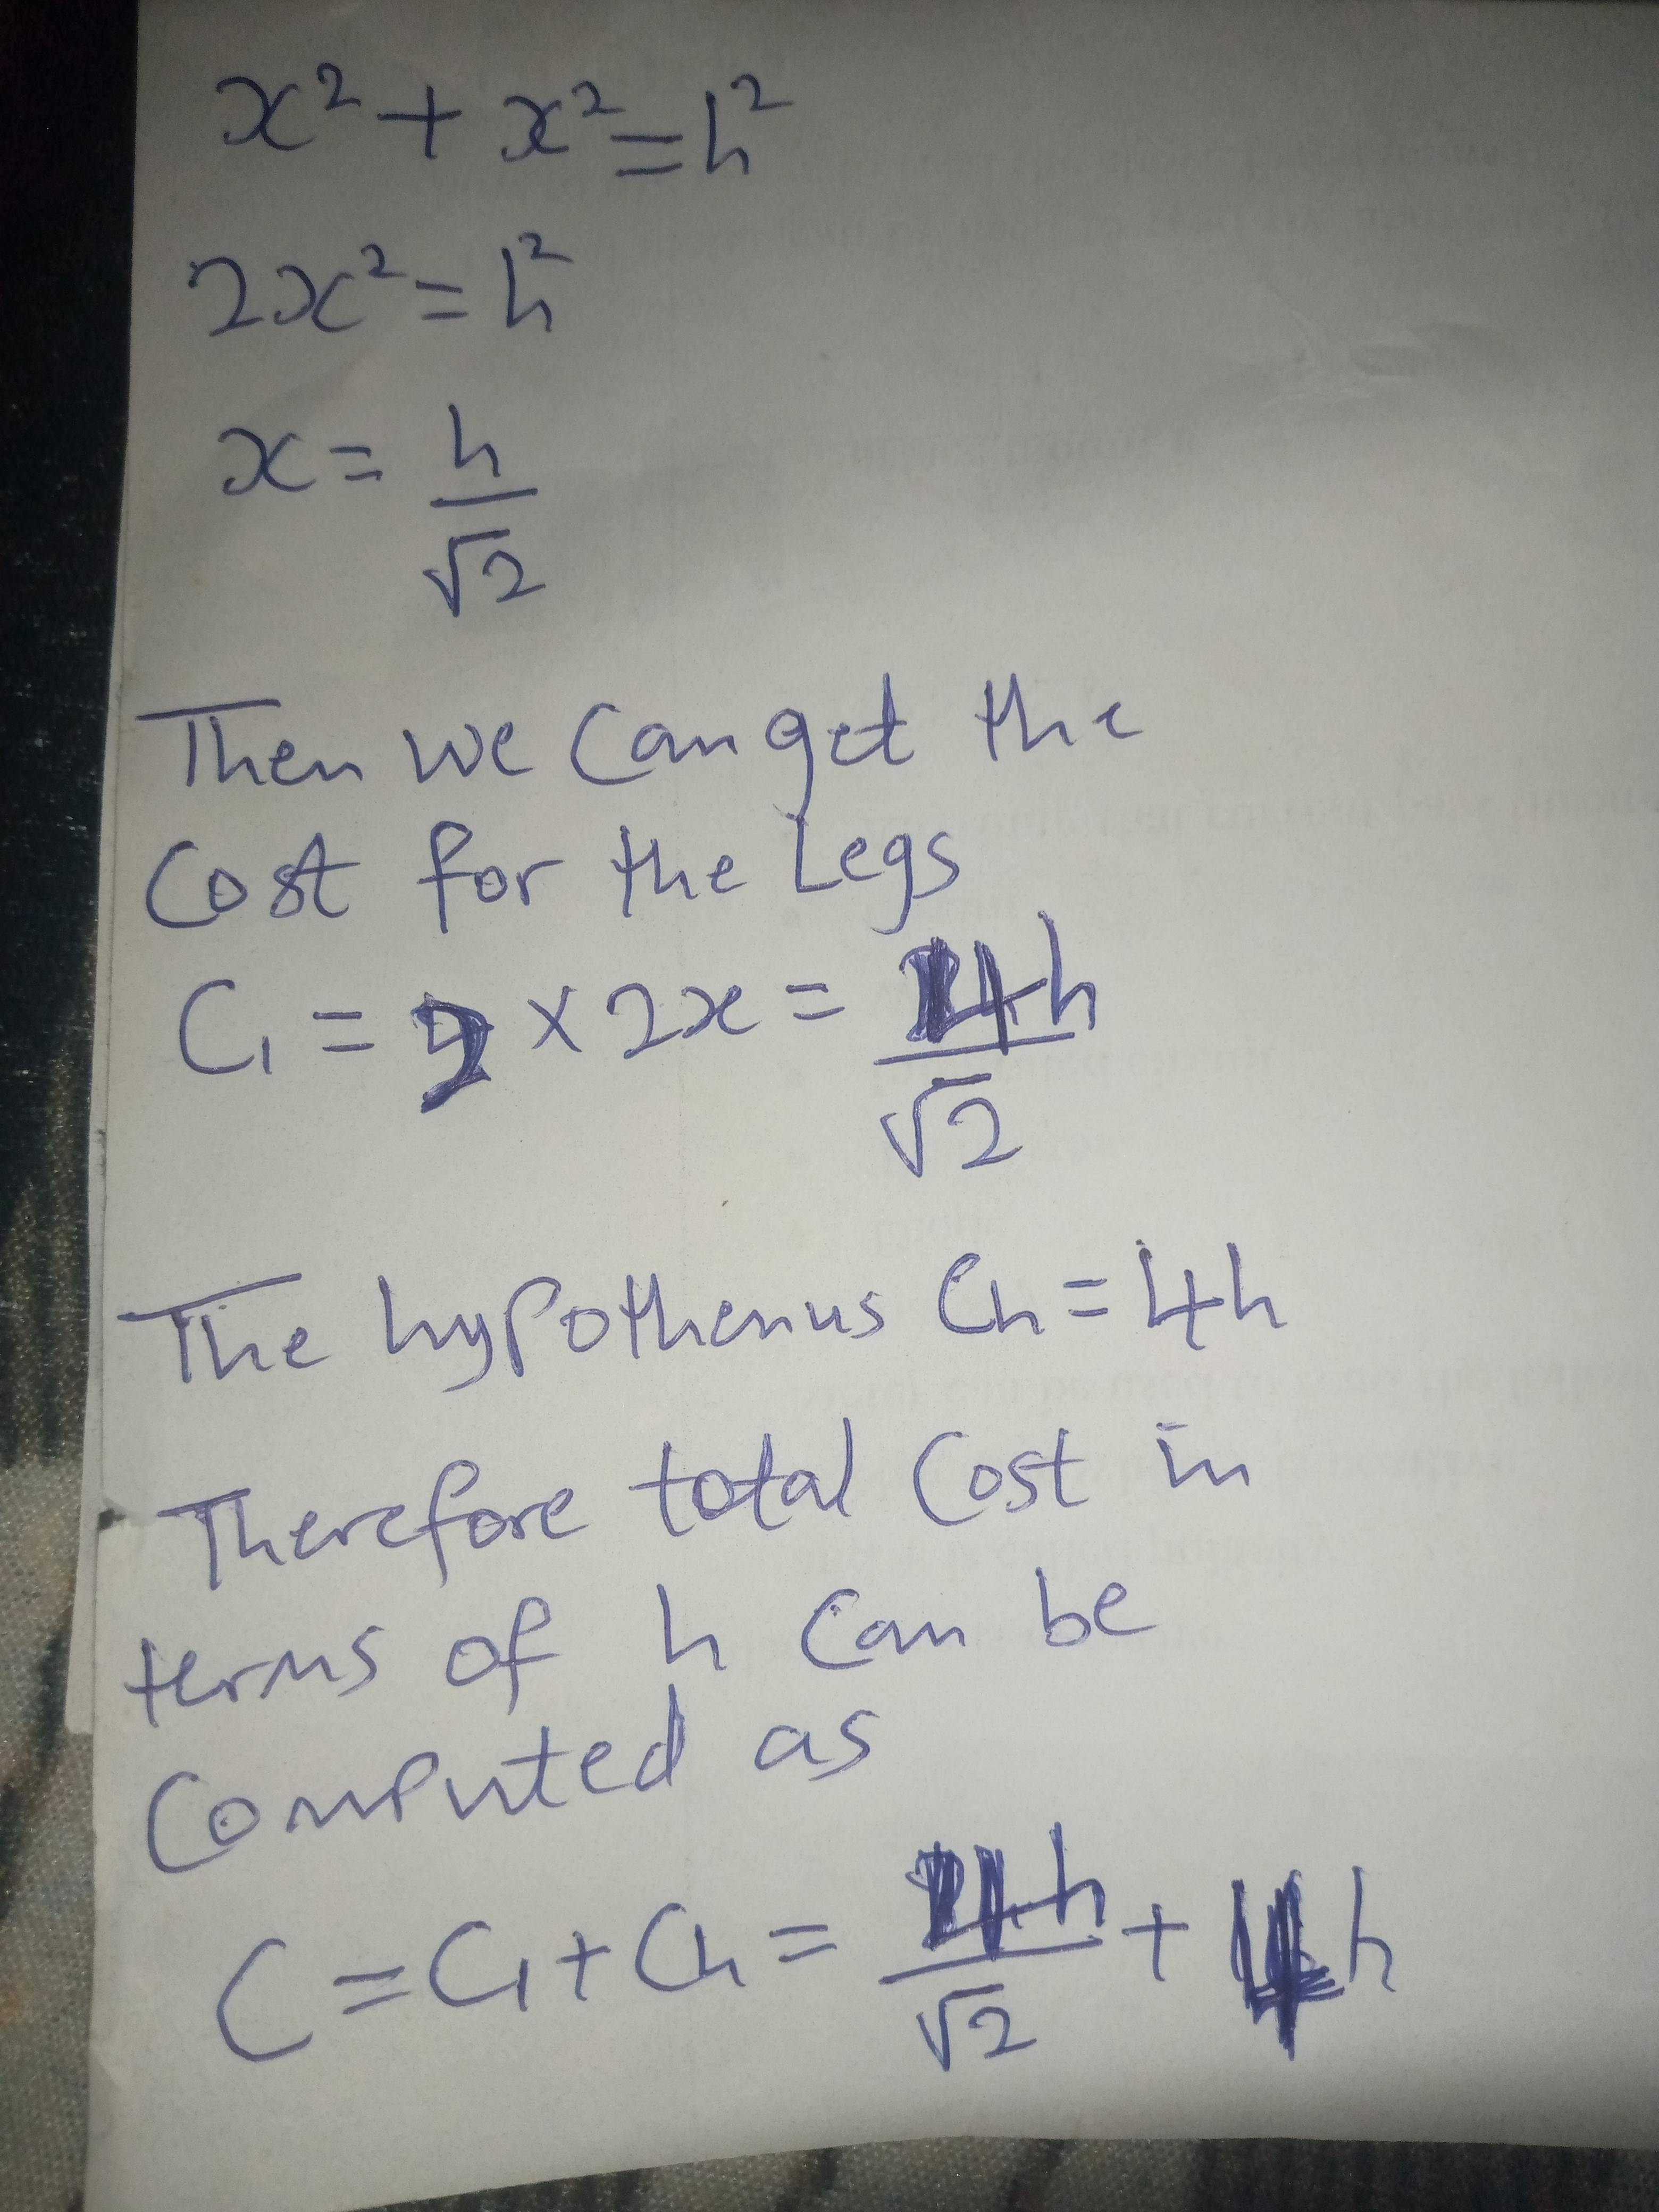 x² + x² = h²
2x² = h²
x = h/√2
Then we can get the
Cost for the Legs
C₁ = 2 × 2x = 4h/√2
The hypothenus Ch = 4h
Therefore total Cost in
terms of h can be
Computed as
C = C₁ + Ch = 4h/√2 + 4h